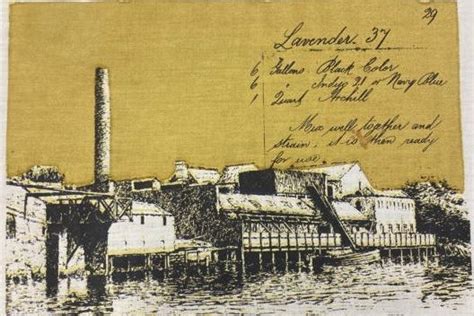 29
Lavender. 37
6 Gallons Black Color
6 " Indigo 21 or Navy Blue
1 Quart Archill
Mix well together and
strain, it is then ready
for use.